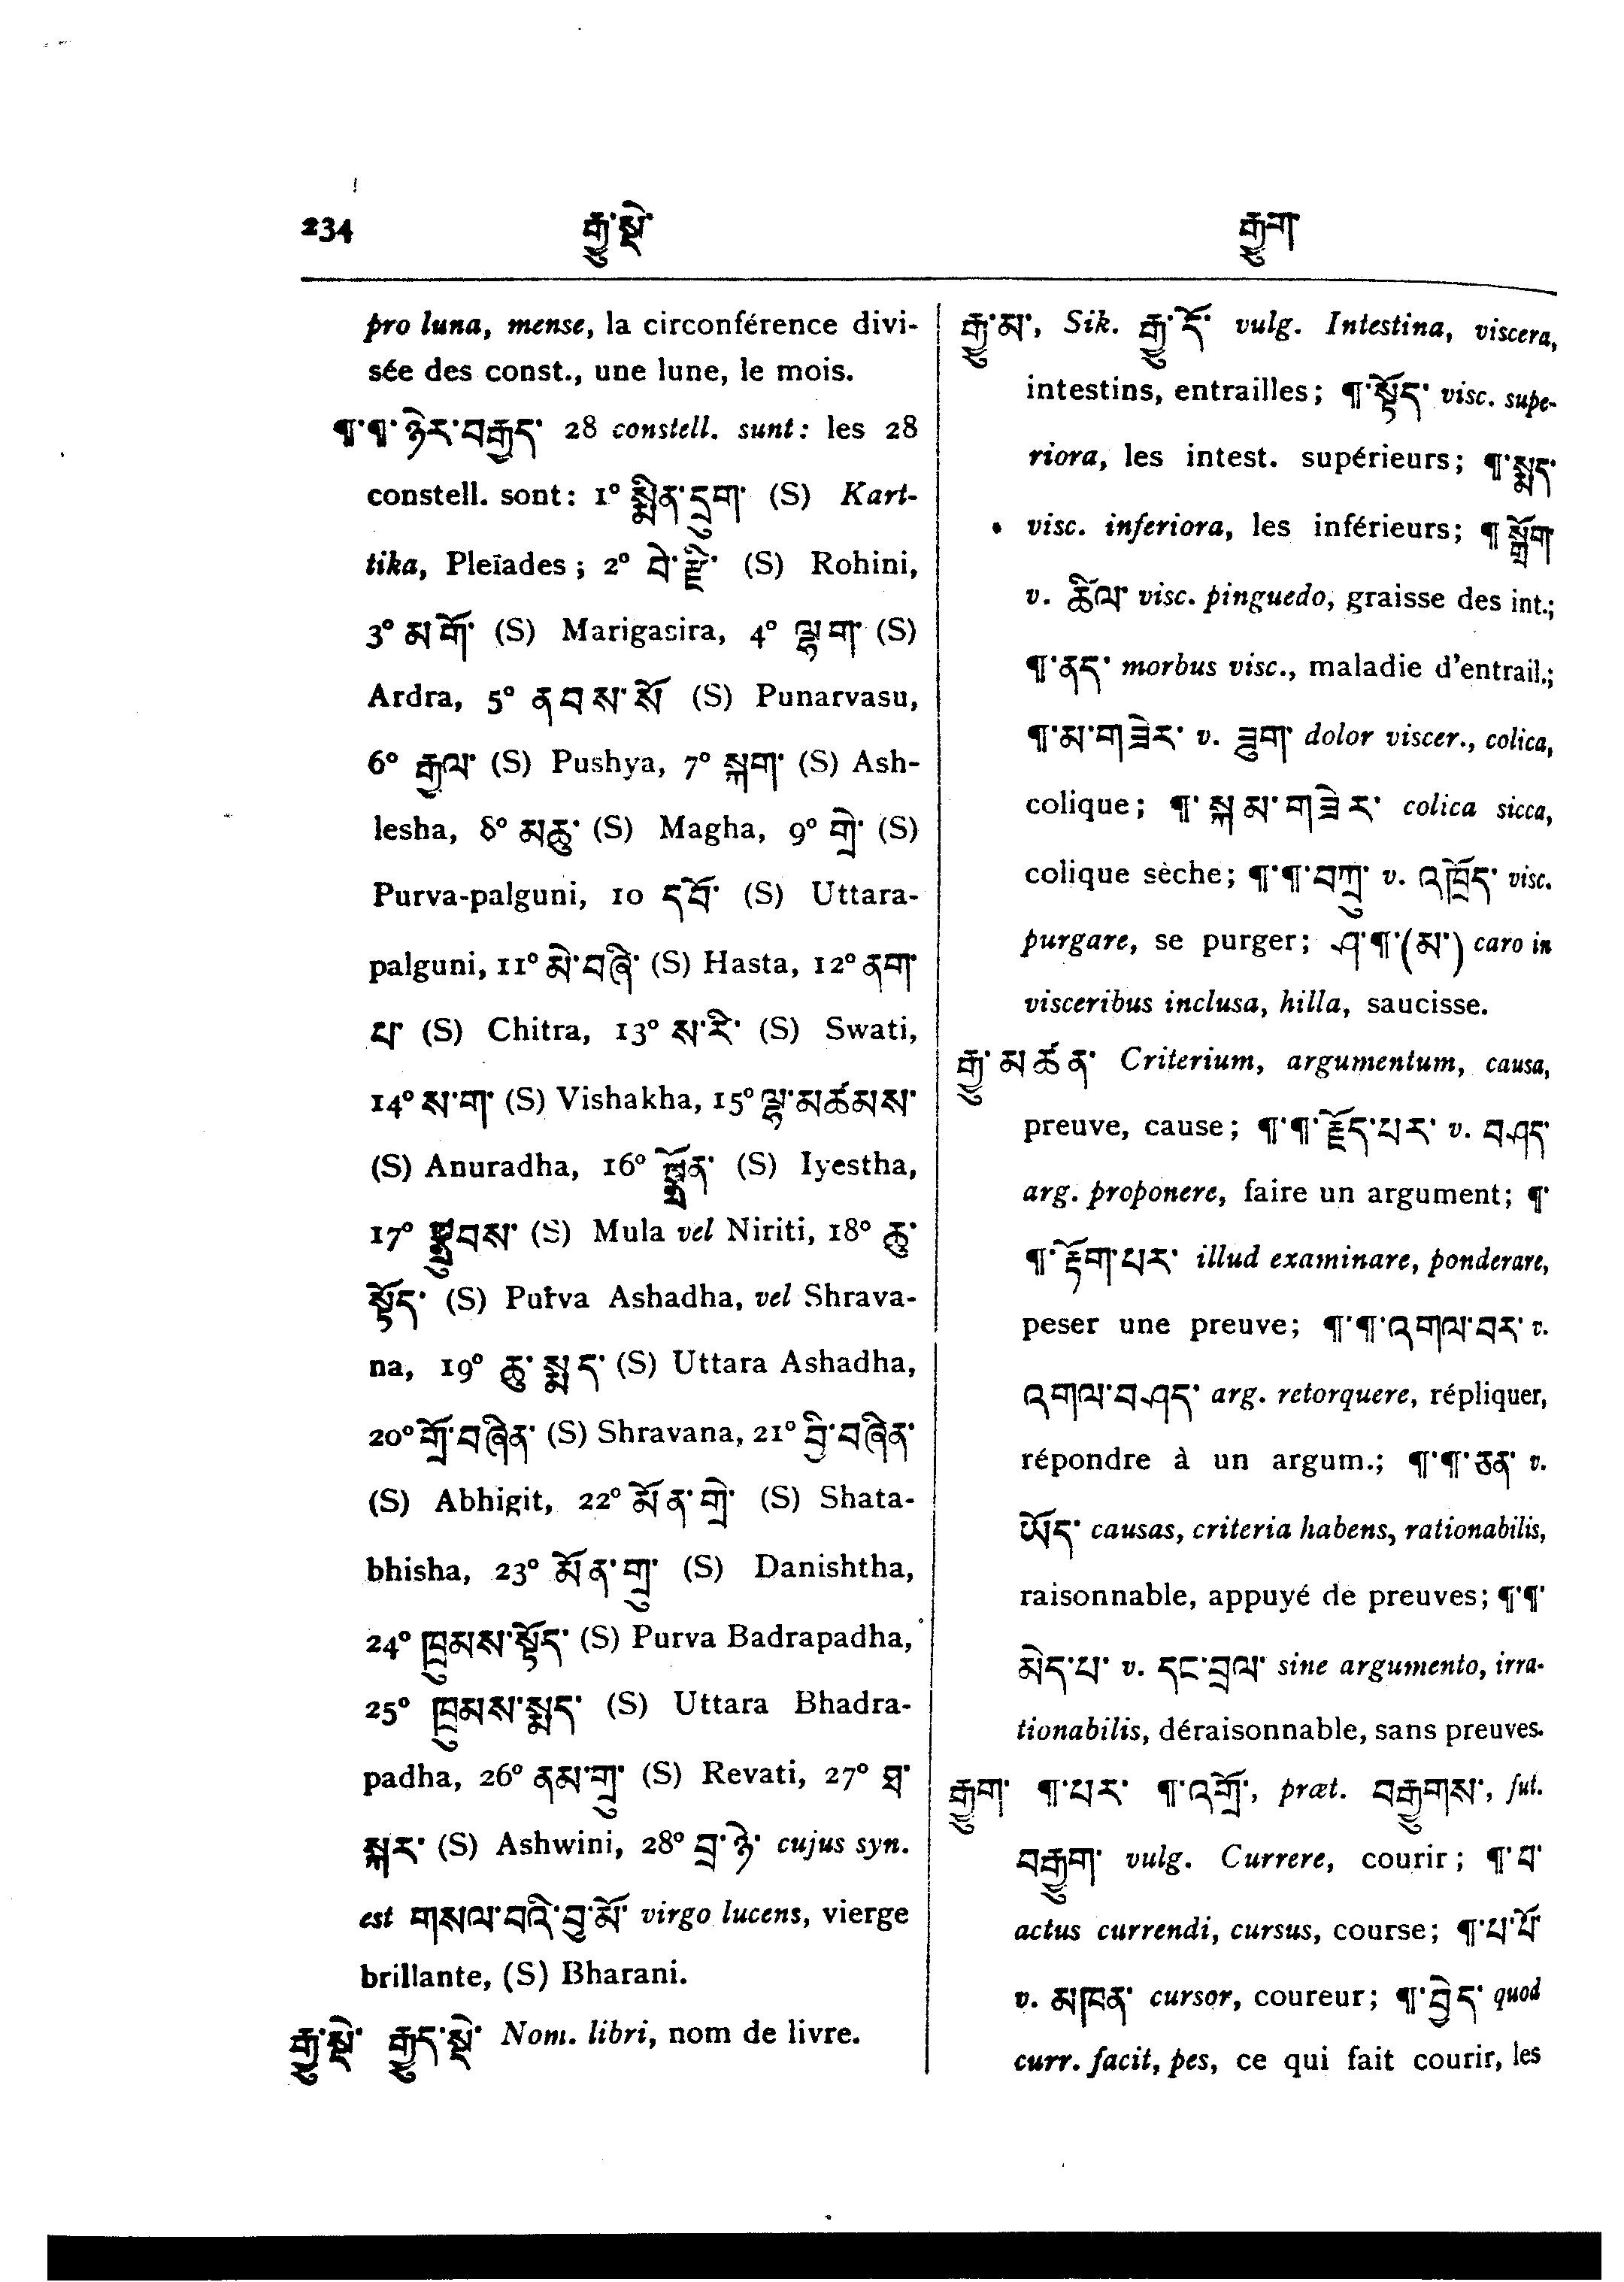 234 རྒྱུ་སྡེ་ རྒྱུག
pro luna, mense, la circonférence divi-
sée des const., une lune, le mois.
¶་¶་ཉེར་བརྒྱད་ 28 constell. sunt: les 28
constell. sont: 1° སྨིན་དྲུག་ (S) Kart-
tika, Pleïades; 2° བེ་རྫི་ (S) Rohini,
3° མགོ་ (S) Marigasira, 4° ལྷག་ (S)
Ardra, 5° ནབས་སོ (S) Punarvasu,
6° རྒྱལ་ (S) Pushya, 7° སྐག་ (S) Ash-
lesha, 8° མཆུ་ (S) Magha, 9° གྲེ་ (S)
Purva-palguni, 10 དབོ་ (S) Uttara-
palguni, 11° མེ་བཞི་ (S) Hasta, 12° ནག་
པ་ (S) Chitra, 13° ས་རི་ (S) Swati,
14° ས་ག་ (S) Vishakha, 15° ལྷ་མཚམས་
(S) Anuradha, 16° སྣྲོན་ (S) Iyestha,
17° སྣྲུབས་ (S) Mula vel Niriti, 18° ཆུ་
སྟོད་ (S) Purva Ashadha, vel Shrava-
na, 19° ཆུ་སྨད་ (S) Uttara Ashadha,
20° གྲོ་བཞིན་ (S) Shravana, 21° བྱི་བཞིན་
(S) Abhigit, 22° མོན་གྲེ་ (S) Shata-
bhisha, 23° མོན་གྲུ་ (S) Danishtha,
24° ཁྲུམས་སྟོད་ (S) Purva Badrapadha,
25° ཁྲུམས་སྨད་ (S) Uttara Bhadra-
padha, 26° ནམ་གྲུ་ (S) Revati, 27° ཐ་
སྐར་ (S) Ashwini, 28° བྲ་ཉེ་ cujus syn.
est གསལ་བའི་བུ་མོ་ virgo lucens, vierge
brillante, (S) Bharani.
རྒྱུ་སྡེ་ རྒྱུད་སྡེ་ Nom. libri, nom de livre.
རྒྱུ་མ་, Sik. རྒྱུ་དོ་ vulg. Intestina, viscera,
intestins, entrailles; ¶་སྟོད་ visc. supe-
riora, les intest. supérieurs; ¶་སྨད་
visc. inferiora, les inférieurs; ¶ སྒྲོག
v. ཚིལ་ visc. pinguedo, graisse des int.;
¶་ནད་ morbus visc., maladie d'entrail.;
¶་མ་གཟེར་ v. ཟུག་ dolor viscer., colica,
colique; ¶་སྐམ་གཟེར་ colica sicca,
colique sèche; ¶་¶་བཀྲུ་ v. འཁྲོད་ visc.
purgare, se purger; ཤ་¶་(མ་) caro in
visceribus inclusa, hilla, saucisse.
རྒྱུ་མཚན་ Criterium, argumentum, causa,
preuve, cause; ¶་¶་རྗོད་པར་ v. བཤད་
arg. proponere, faire un argument; ¶་
¶་རྟོག་པར་ illud examinare, ponderare,
peser une preuve; ¶་¶་འགལ་བར་ v.
འགལ་བཤད་ arg. retorquere, répliquer,
répondre à un argum.; ¶་¶་ཅན་ v.
ཡོད་ causas, criteria habens, rationabilis,
raisonnable, appuyé de preuves; ¶་¶་
མེད་པ་ v. དང་བྲལ་ sine argumento, irra-
tionabilis, déraisonnable, sans preuves.
རྒྱུག་ ¶་པར་ ¶་འགྲོ་, præt. བརྒྱུགས་, fut.
བརྒྱུག་ vulg. Currere, courir; ¶་བ་
actus currendi, cursus, course; ¶་པ་པོ
v. མཁན་ cursor, coureur; ¶་བྱེད་ quod
curr. facit, pes, ce qui fait courir, les